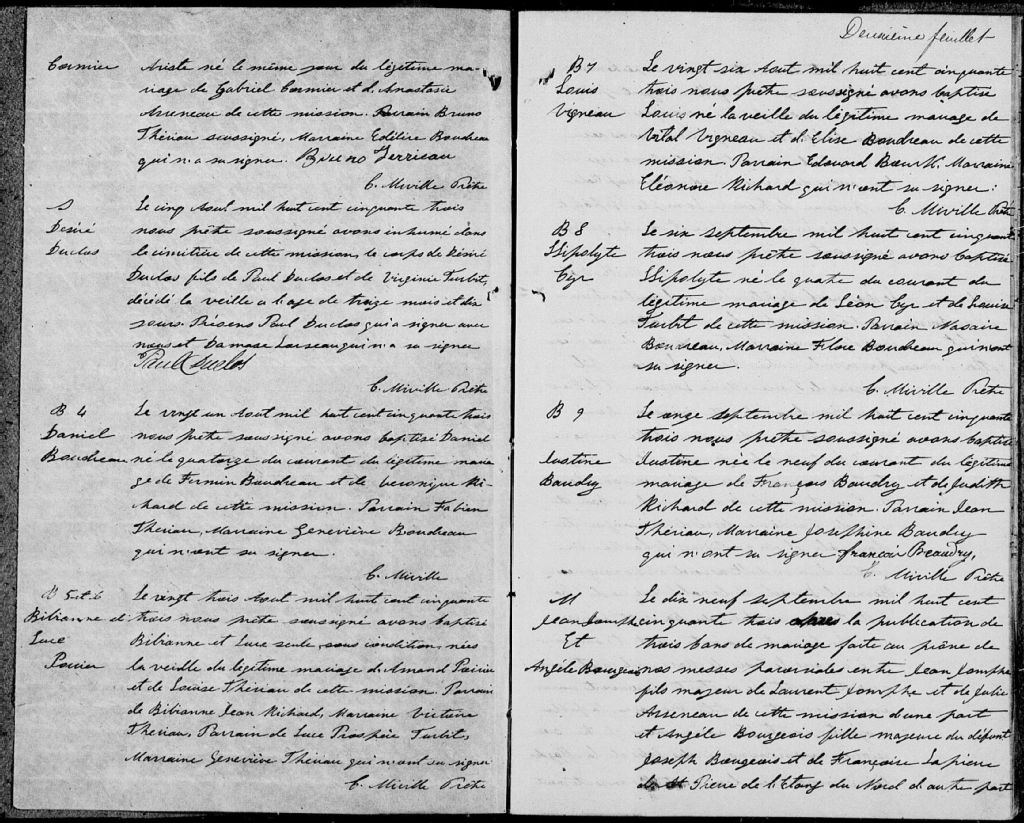 Cormier
Ariste né le même jour du légitime ma-
riage de Gabriel Cormier et d'Anastasie
Arseneau de cette mission. Parrain Bruno
Thériau soussigné, Marraine Edélire Boudreau
qui n'a su signer. Bruno Terrieau
C. Miville Ptre
S
Désiré
Duclos
Le cinq Aout mil huit cent cinquante trois
nous prêtre soussigné avons inhumé dans
le cimitière de cette mission, le corps de Désiré
Duclos fils de Paul Duclos et de Virginie Turbit,
décédé la veille a l'age de treize mois et dix
jours. Présens Paul Duclos qui a signer avec
nous et Damase qui n'a su signer
Paul Duclos
C. Miville Ptre
B 4
Daniel
Boudreau
Le vingt un Aout mil huit cent cinquante trois
nous prêtre soussigné avons baptisé Daniel
né le quatorze du courant du légitime maria
ge de Firmin Boudreau et de Veronique Ri-
chard de cette mission. Parrain Fabien
Thériau, Marraine Geneviève Boudreau
qui n'ont su signer.
C. Miville
B 5 et 6
Bibianne et
Luce
Poirier
Le vingt trois Aout mil huit cent cinquante
trois nous prêtre soussigné avons baptisé
Bibianne et Luce seule, sous condition, nées
la veille du légitime mariage d'Amand Poirier
et de Louise Thériau de cette mission. Parrain
de Bibianne Jean Richard, Marraine Victoire
Thériau, Parrain de Luce Prospère Turbit,
Marraine Geneviève Thériau qui n'ont su signer
C. Miville Ptre
Deuxième feuillet
B 7
Louis
Vigneau
Le vingt six Aout mil huit cent cinquante
trois nous prêtre soussigné avons baptisé
Louis né la veille du légitime mariage de
Vital Vigneau et d'Elise Boudreau de cette
mission. Parrain Edouard Bourk. Marraine
Eléonore Richard qui n'ont su signer.
C. Miville Ptre
B 8
Hipolyte
Cyr
Le six septembre mil huit cent cinquante
trois nous prêtre soussigné avons baptisé
Hipolyte né le quatre du courant du
légitime mariage de Léon Cyr et de Louise
Turbit de cette mission. Parrain Nasaire
Boudreau, Marraine Flore Boudreau qui n'ont
su signer.
C. Miville Ptre
B 9
Justine
Baudry
Le onze septembre mil huit cent cinquante
trois nous prêtre soussigné avons baptisé
Justine née le neuf du courant du légitime
mariage de François Baudry et de Judith
Richard de cette mission. Parrain Jean
Thériau, Marraine Josephine Baudry
qui n'ont su signer françois Beaudry,
C. Miville Ptre
M
Jean Jomphe
Et
Angèle Bourgeois
Le dix neuf septembre mil huit cent
cinquante trois après la publication de
trois bans de mariage faite au prône de
nos messes paroissiales entre Jean Jomphe
fils majeur de Laurent Jomphe et de Julie
Arseneau de cette mission d'une part
et Angèle Bourgeois fille majeure du défunt
Joseph Bourgeois et de Françoise Lapierre
de St Pierre de l'Etang du Nord d'autre part